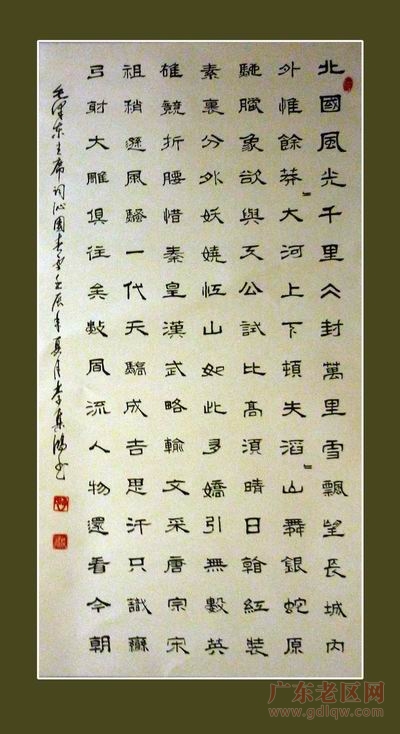 北國風光千里仌封萬里雪飄望長城内
外惟餘莽〻大河上下頓失滔〻山舞銀蛇原
馳臘象欲與天公試比高須晴日翰紅裝
素裹分外妖嬈江山如此多嬌引無數英
雄競折腰惜秦皇漢武略輸文采唐宗宋
祖稍遜風騷一代天驕成吉思汗只識彎
弓射大雕俱往矣數風流人物還看今朝
毛澤东主席词沁園春雪壬辰年夏月李
广东老区网
www.gdlqw.com